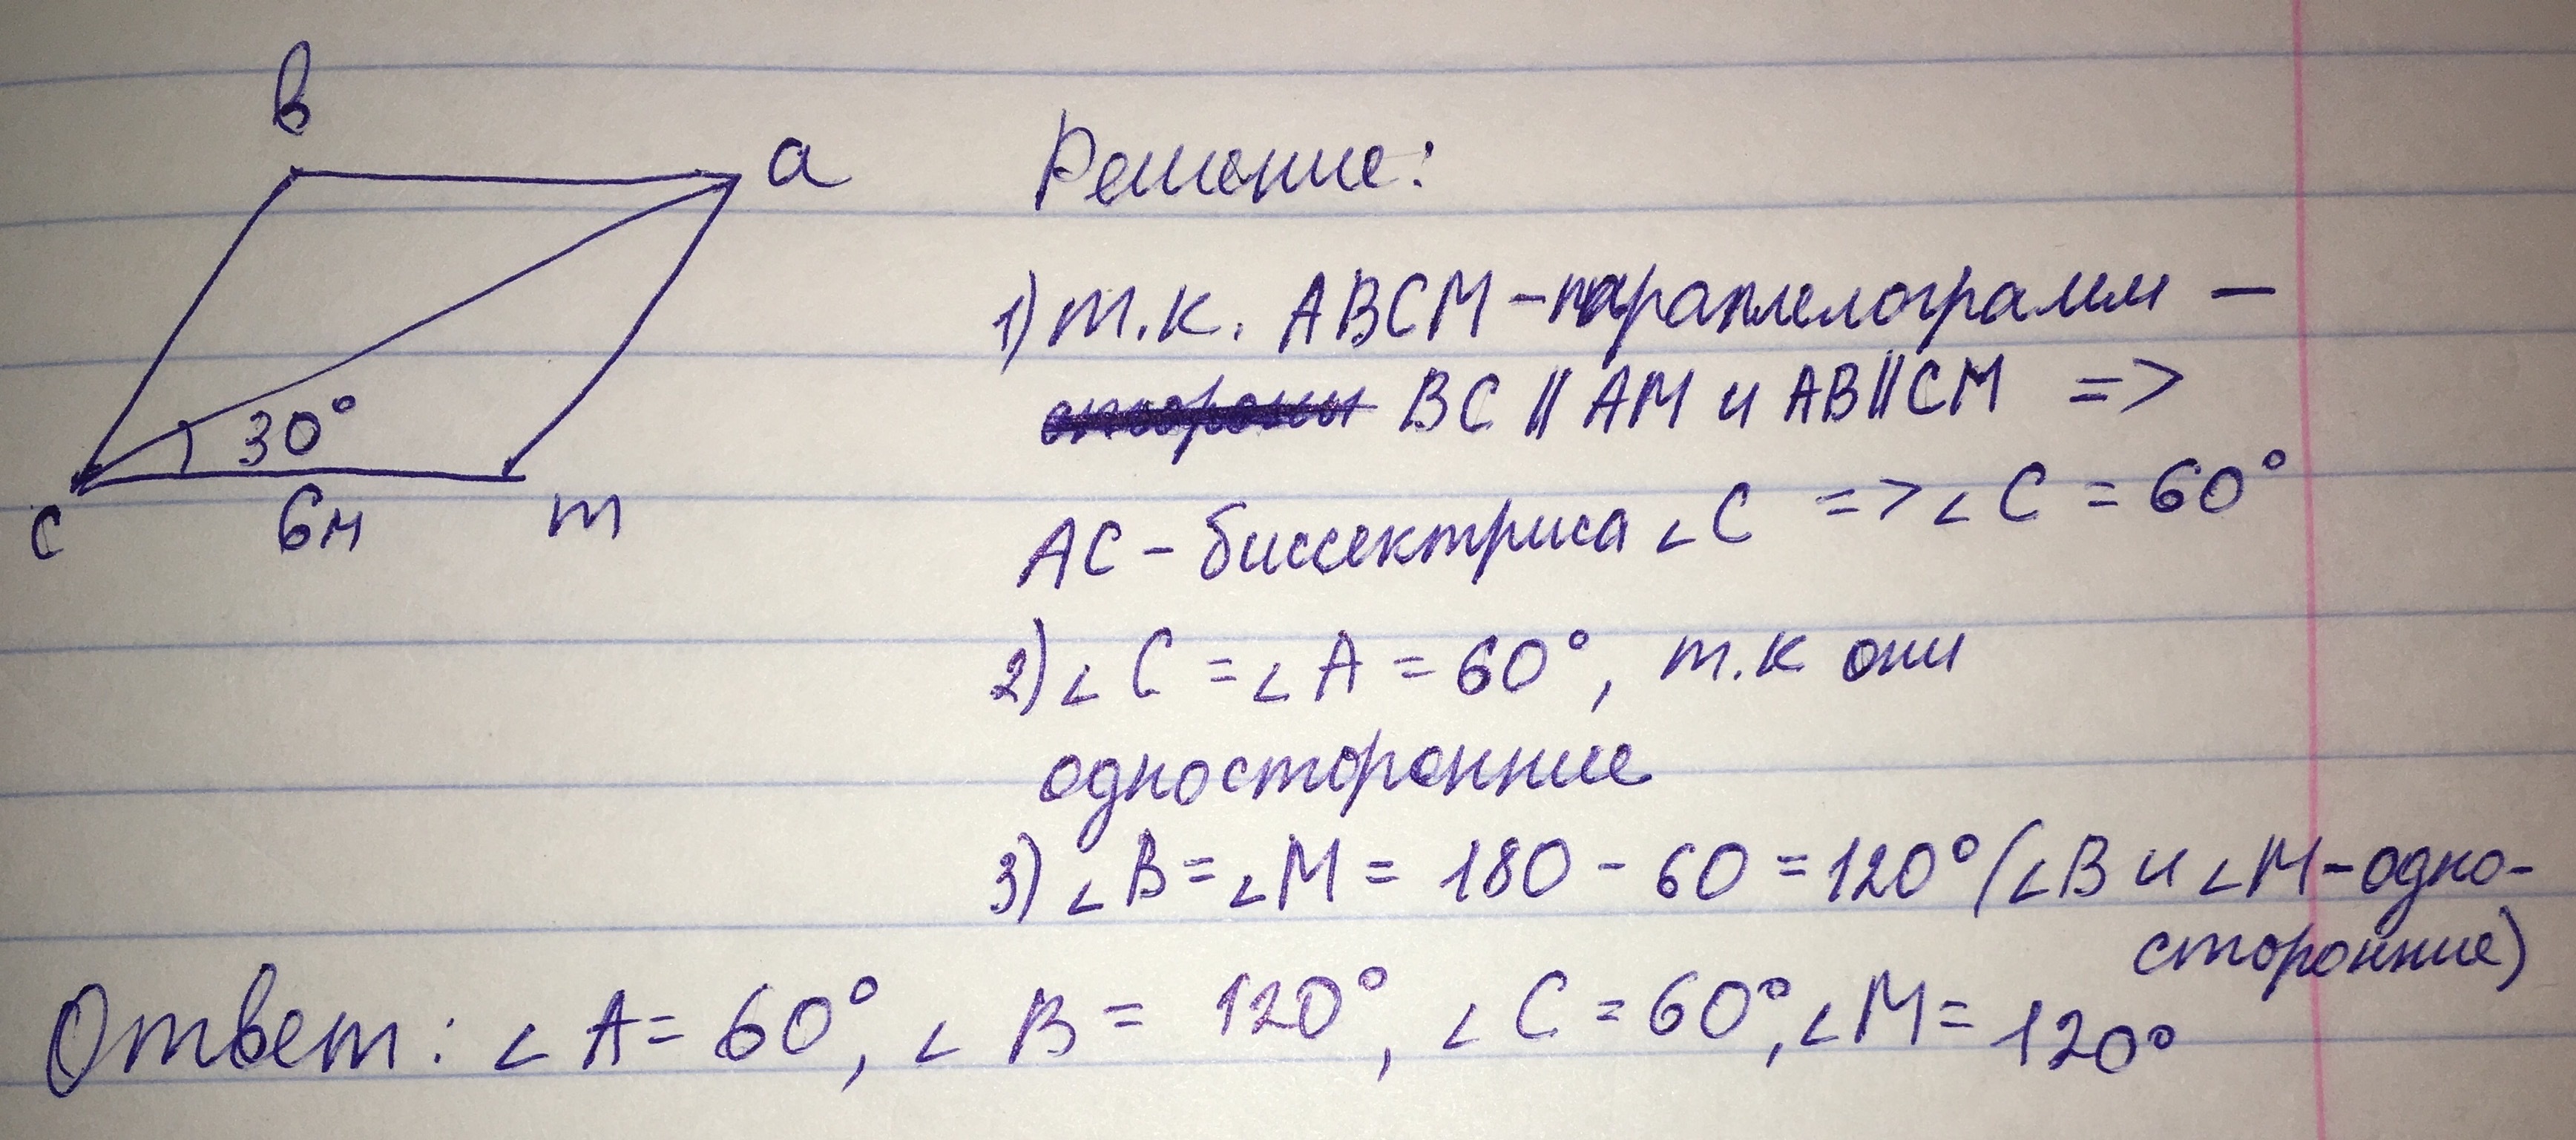 в
а
30°
с
6м
т
Решение:
1) т.к. ABCM - параллелограмм -
стороны BC || AM и AB || CM =>
AC - биссектриса ∠C => ∠C = 60°
2) ∠C = ∠A = 60°, т.к они
односторонние
3) ∠B = ∠M = 180 - 60 = 120° (∠B и ∠M - одно-
сторонние)
Ответ: ∠A = 60°, ∠B = 120°, ∠C = 60°, ∠M = 120°